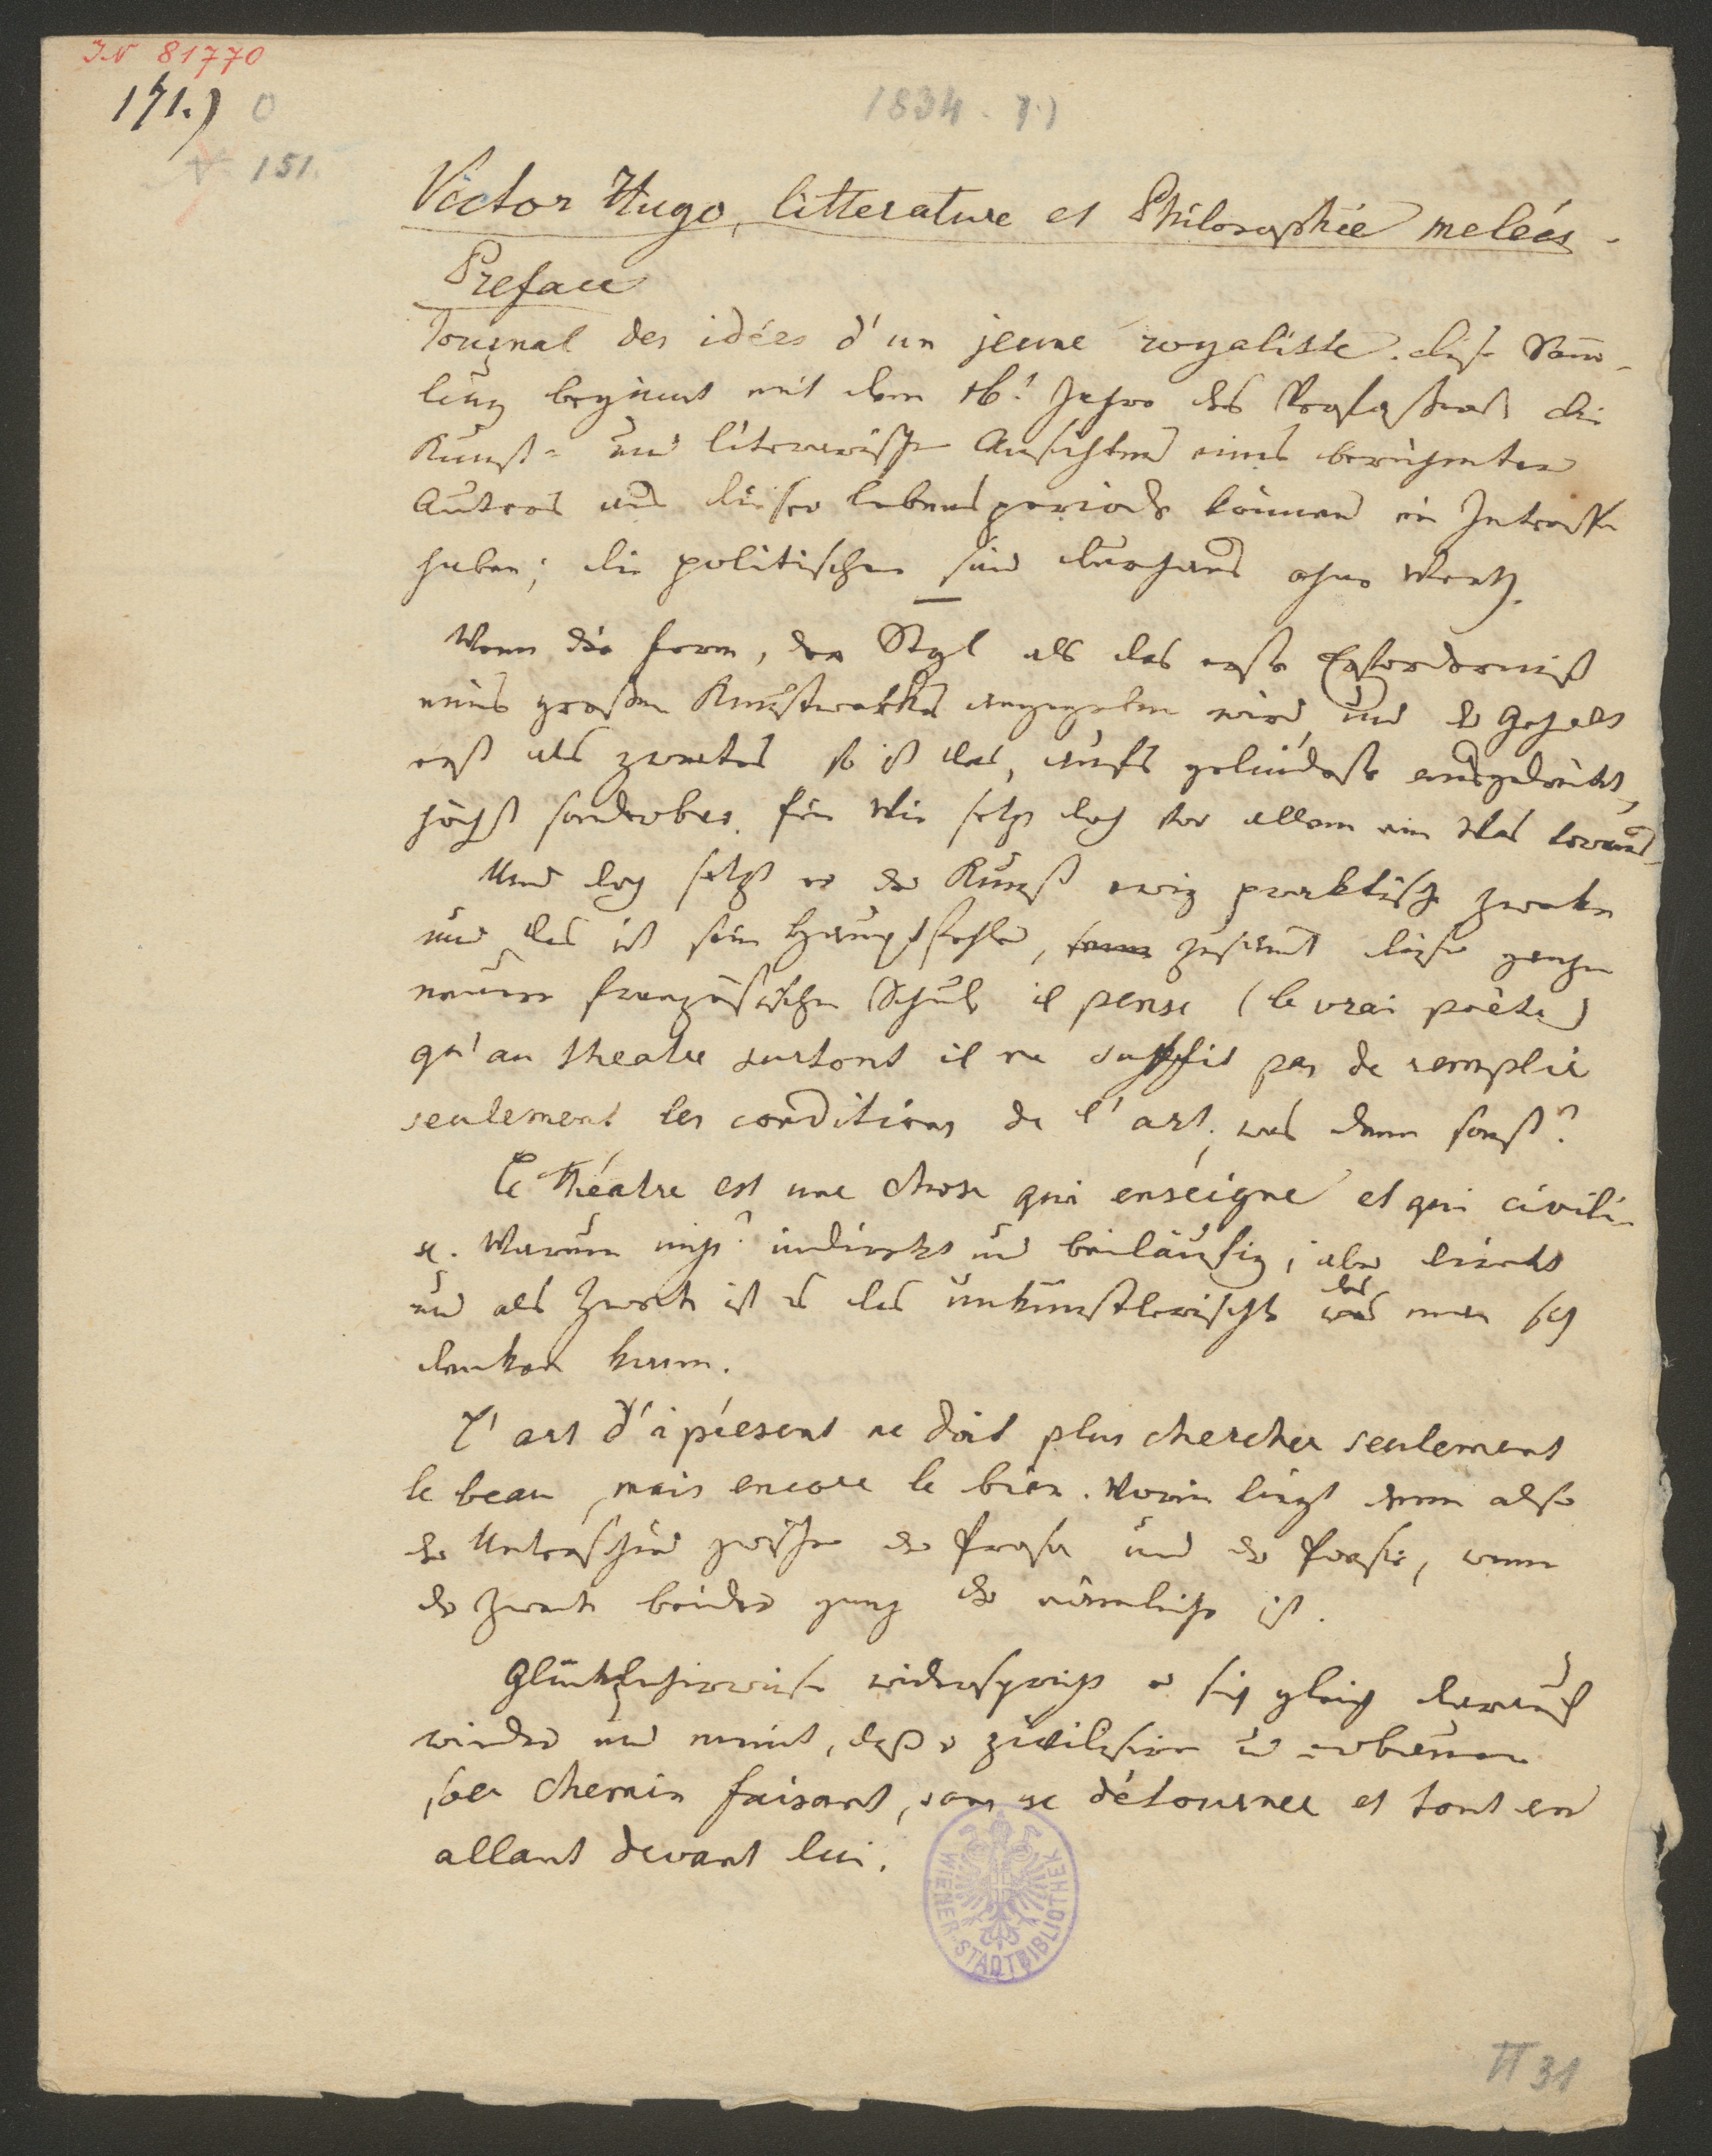 IN 81770
171.) 0
151.
1834.
Victor Hugo, litterature et Philosophie meleés.
Preface
Journal des idées d'un jeune royaliste. diese Samm-
lung beginnt mit dem 16t Jahre des Verfassers die
Kunst- und literarischen Ansichten eines berühmten
Autors aus dieser Lebensperiode können ein Interesse
haben; die politischen sind durchaus ohne Werth.
Wenn die Form, der Styl als das erste Erforderniß
eines großen Kunstwerkes angegeben wird, und der Gehalt
erst als zweites so ist das, aufs gelindeste ausgedrückt,
höchst sonderbar. Ein Wie setzt doch vor allem ein Was voraus.
Und doch setzt er der Kunst ewig praktische Zwecke
und das ist sein Hauptfehler, zusamt dieser ganzen
neuern französischen Schule il pense (le vrai poète)
qu'au theatre surtout il ne suffit pas de remplir
seulement les conditions de l'art, was denn sonst?
Le théatre est une chose qui enseigne et qui civili-
se. Warum nicht? indirekt und beiläufig; aber direkt
und als Zweck ist es das unkünstlerischste das was man sich
denken kann.
L'art d'à présent ne doit plus chercher seulement
le beau, mais encore le bien. Worin liegt denn also
der Unterschied zwischen der Prosa und der Poesie, wenn
der Zweck beider ganz der nämliche ist.
Glücklicherweise widerspricht er sich gleich darauf
wieder und meint, daß er zivilisire und erbaue
sa chemin faisant, sans se détourner et tout en
allant devant lui.
WIENER STADTBIBLIOTHEK
II 31